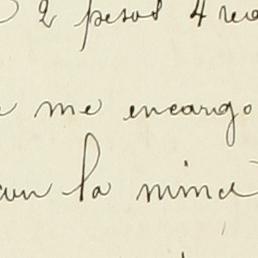 2 pesos 4 rea
me encargo
la mina